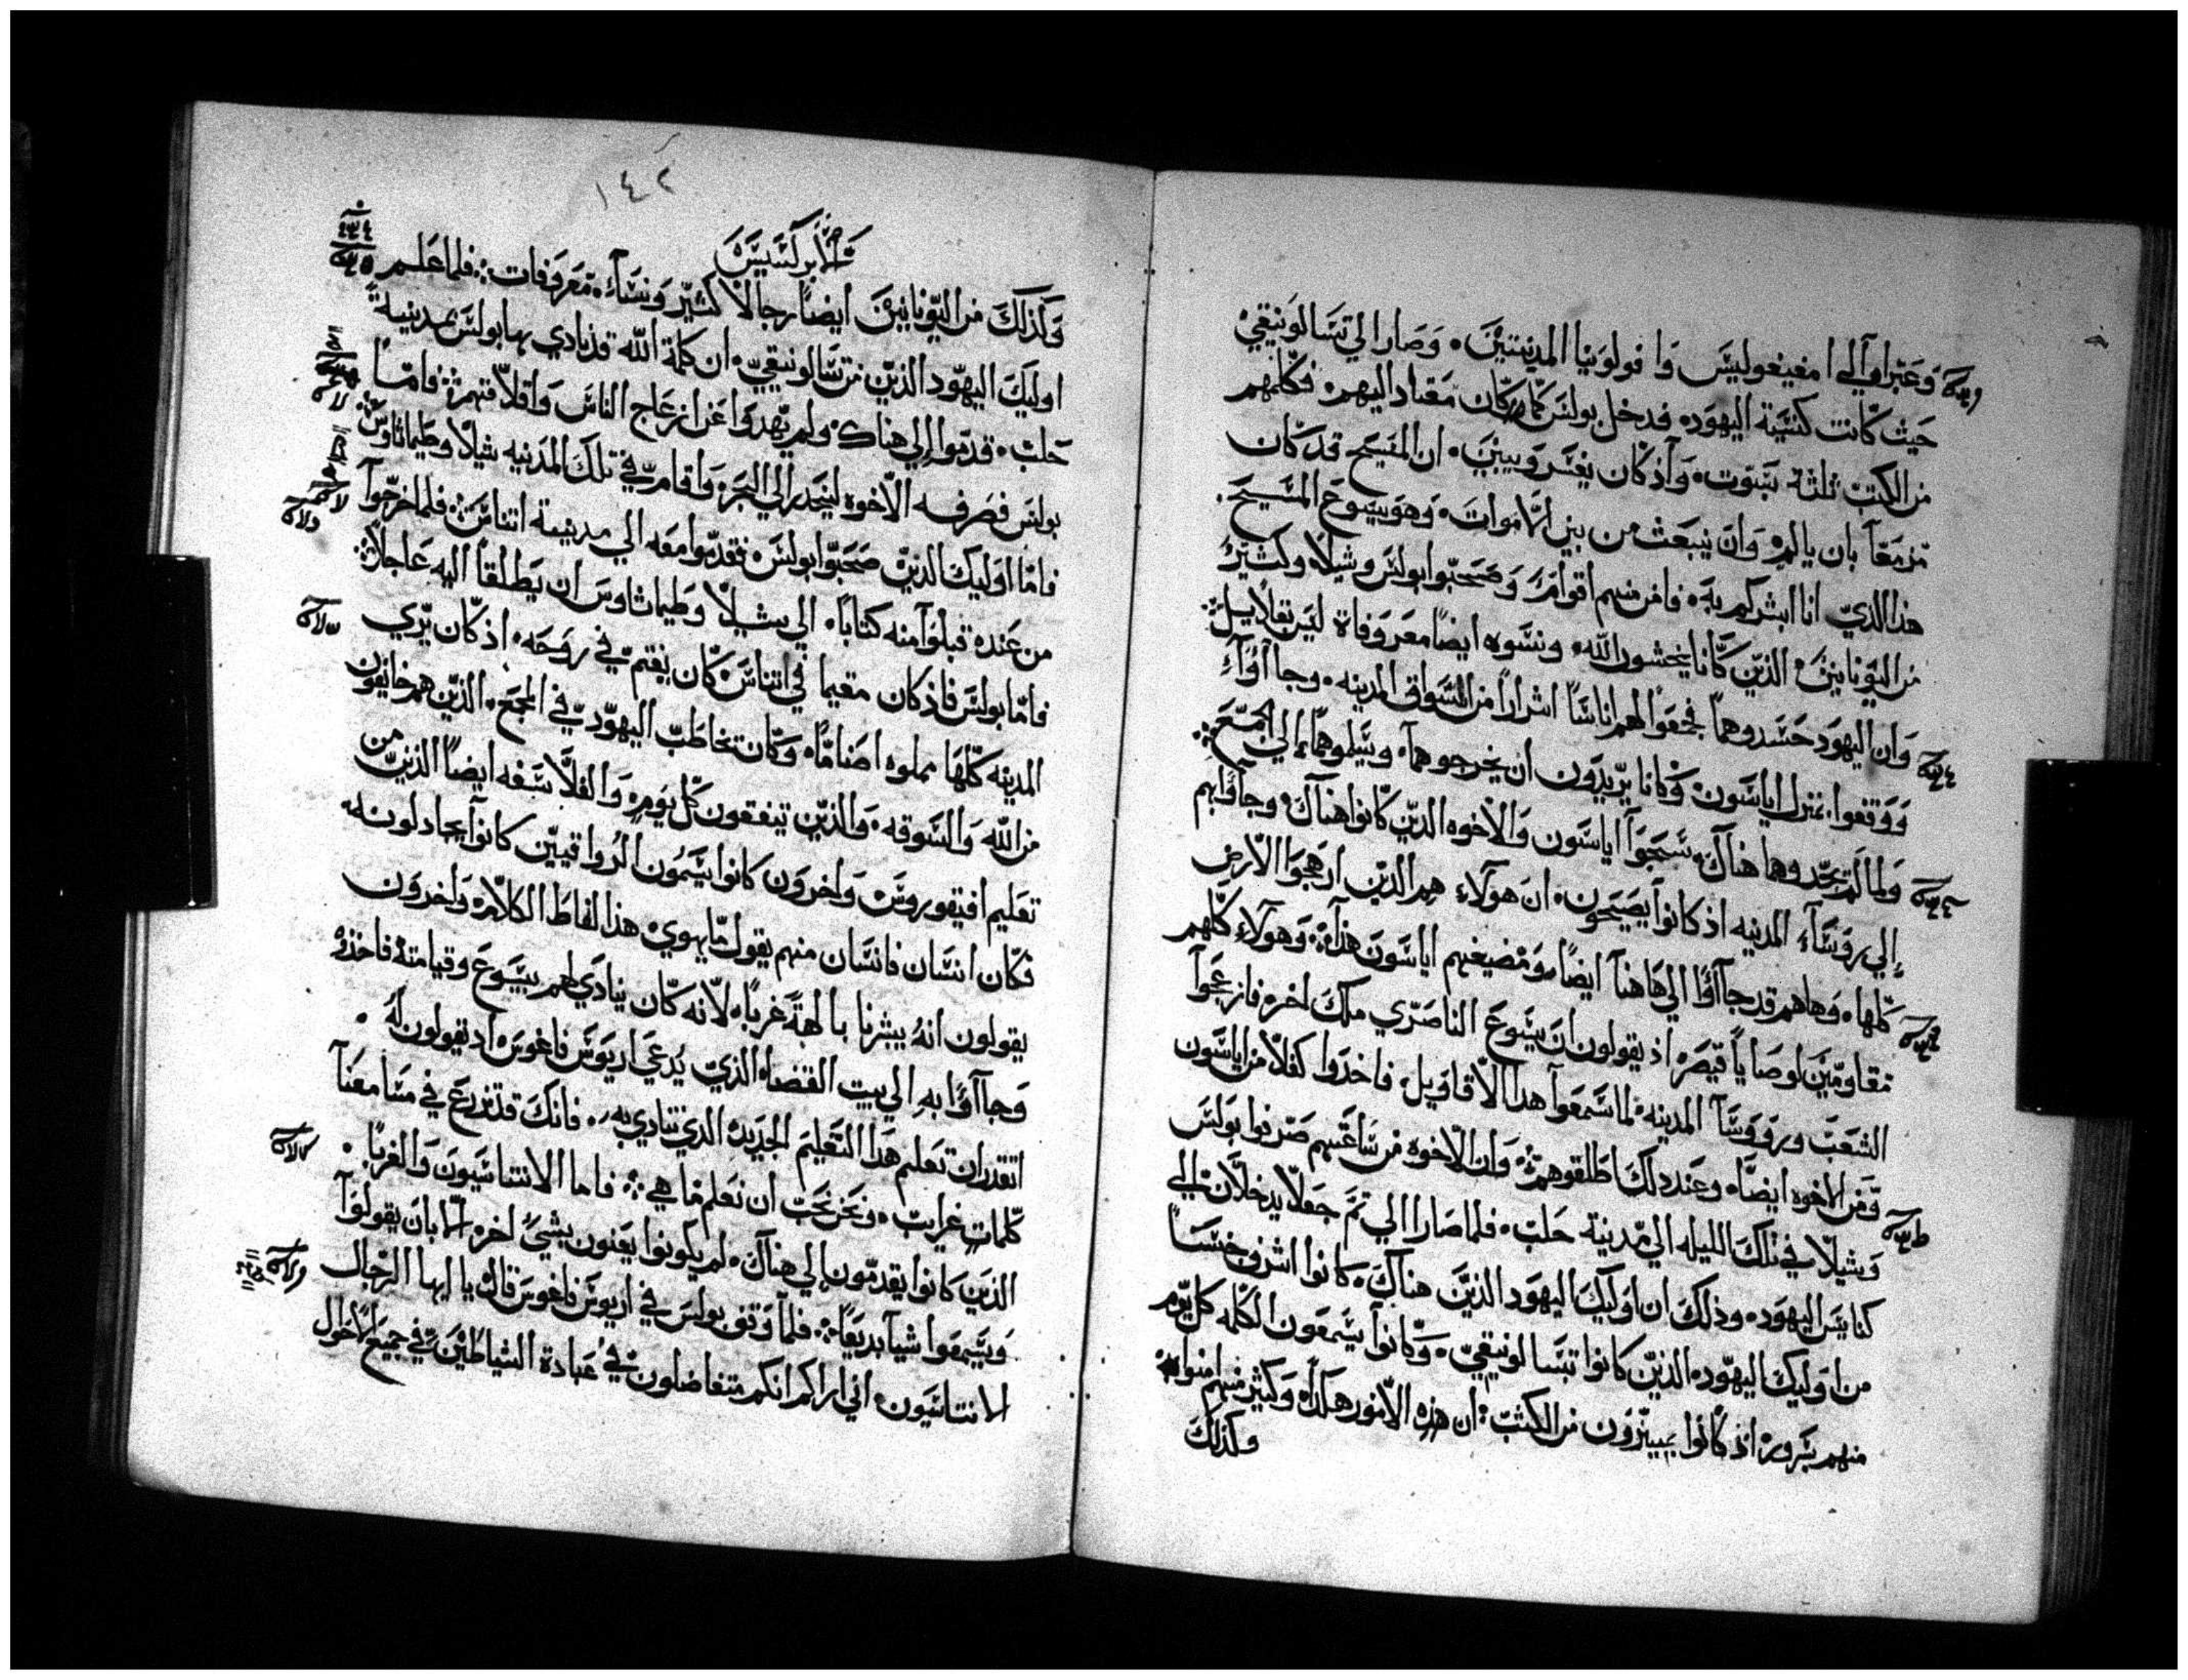 وعبرا في الي امفيغوليس وافولونيا المدينتين. وصارا الي تسالونيقي
حيث كانت كنيسة اليهود. فدخل بولس كما كان معتاد اليهم. فكلمهم
من الكتب ثلثة سبوت. واذ كان يفسر ويبين. ان المسيح قد كان
مزمعا بان يالم. وان ينبعث من بين الاموات. وهو يسوع المسيح.
هذا الذي انا ابشركم به. فامن منهم اقوام. وصحبوا بولس وشيلا. وكثير
من اليونانيين. الذين كانوا يخشون الله. ونسوه ايضا معروفاة ليس بقلايل
وان اليهود حسدوهما فجمعوا لهم اناسا اشرارا من اسواق المدينه. وجاآوا
ووقفوا بمنزل اياسون. وكانا يريدون ان يخرجوهما. ويسلموهما الي الجمع
ولما لم يجدوهما هناك. سحبوا اياسون والاخوه الذين كانوا هناك. وجآوابهم
الي روسآء المدينه اذ كانوا يصيحون. ان هولاء هم الذين ارهجوا الارض
كلها. وهاهم قد جاآوا الي هاهنا ايضا. ومضيفهم اياسون هذا. وهولاء كلهم
مقاومين لوصايا قيصر. اذ يقولون ان يسوع الناصري ملك اخر. فازعجوا
الشعب وروسآ المدينه. لما سمعوا هدا الاقاويل. فاخدوا كفلا من اياسون
ومن الاخوه ايضا. وعند دلك اطلقوهم. وان الاخوه من ساعتهم صرفوا بولس
وشيلا في تلك الليله الي مدينة حلب. فلما صارا الي تم جعلا يدخلان الي
كنايس اليهود. وذلك ان اوليك اليهود الذين هناك. كانوا اشرف حسسا
من اوليك اليهود. الذين كانوا بتسالونيقي. وكانوا يسمعون الكله كل يوم
منهم بسرور. اذ كانوا يميزون من الكتب. ان هذه الامور هكذا. وكثير منهم امنوا.
وكذلك
١٤٢
الابركسيس
وكذلك من اليونانيين ايضا رجالا كثير ونسآء. معروفات. فلما علم
اوليك اليهود الذين من تسالونيقي. ان كلمة الله قد نادي بها بولس بمدينة
حلب. قدموا الي هناك. ولم يهدوا عن ازعاج الناس واقلاقهم. فاما
بولس فصرفه الاخوه لينحدر الي البحر. واقام في تلك المدنيه شيلا وطيماثاوس
فاما اوليك الذين صحبوا بولس. فقدموا معه الي مدينة اتناس. فلما خرجوا
من عنده قبلوا منه كتابا. الي شيلا وطيماثاوس ان يطلقا اليه عاجلا
فاما بولس فاذ كان مقيما في اتناس. كان يغتم في روحه. اذ كان يري
المدينه كلها مملوه اصناما. وكان يخاطب اليهود في المجمع. الذين هم خايفون
من الله والسوقه. والذين يتفقون كل يوم. والفلاسفه ايضا الذين من
تعليم افيقوروس واخرون كانوا يسمون الرواقيين كانوا يجادلونه
فكان انسان فانسان منهم يقول ما يهوي. هذا لفاط الكلام. واخرون
يقولون انه يبشرنا بالهة غربا. لانه كان ينادي لهم بيسوع وقيامته. فاخذوه
وجاآوا به الي بيت القضا. الذي يدعي اريوس فاغوس. اد يقولون له.
اتقدر ان تعلم هدا التعليم الجديد. الذي تنادي به. فانك قد تزرع في مسامعنا
كلمات غرايب. ونحن نحب ان نعلم ما هي. فاما الاتناسيون والغربا.
الذين كانوا يقدمون الي هناك. لم يكونوا يعنون بشي اخر. الا بان يقولوا
ويسمعوا شيا بديعا. فلما وقف بولس في اريوس فاغوس قال. يا ايها الرجال
الاتناسيون. اني اراكم انكم متفاضلون في عبادة الشياطين. في جميع الاحوال